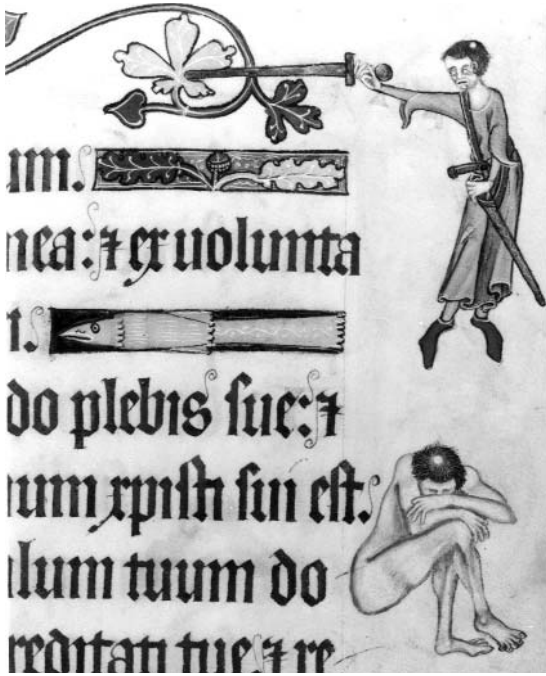 um.
mea: ⁊ ex uolunta
i.
do plebis sue: ⁊
num xpisti sui est.
ulum tuum do
reditati tue: ⁊ re